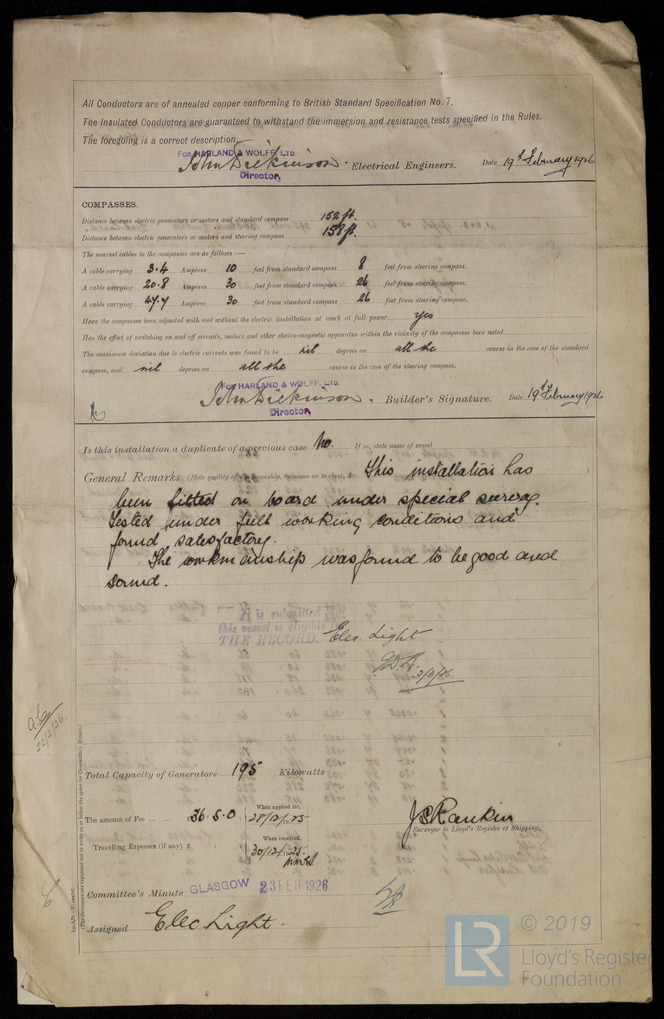 All Conductors are of annealed copper conforming to British Standard Specification No. 7.
The Insulated Conductors are guaranteed to withstand the immersion and resistance tests specified in the Rules.
The foregoing is a correct description.
FOR HARLAND & WOLFF, LTD.
John Dickinson. Electrical Engineers. Date 19th February 1926
Director.
COMPASSES.
Distance between electric generators or motors and standard compass 152 ft.
Distance between electric generators or motors and steering compass 158 ft.
The nearest cables to the compasses are as follows :—
A cable carrying 3.4 Ampères 10 feet from standard compass 8 feet from steering compass.
A cable carrying 20.8 Ampères 30 feet from standard compass 26 feet from steering compass.
A cable carrying 47.7 Ampères 30 feet from standard compass 26 feet from steering compass.
Have the compasses been adjusted with and without the electric installation at work at full power yes
Has the effect of switching on and off circuits, motors and other electro-magnetic apparatus within the vicinity of the compasses been noted
The maximum deviation due to electric currents was found to be nil degrees on all the course in the case of the standard
compass, and nil degrees on all the course in the case of the steering compass.
FOR HARLAND & WOLFF, LTD.
John Dickinson. Builder's Signature. Date 19th February 1926
Director.
Is this installation a duplicate of a previous case No. If so, state name of vessel
General Remarks (State quality of workmanship, opinions as to class, &c. This installation has
been fitted on board under special survey.
Tested under full working conditions and
found satisfactory.
The workmanship was found to be good and
sound.
It is submitted that
this vessel is eligible for
THE RECORD. Elec. Light
3/3/26.
22/2/26.
Total Capacity of Generators 195 Kilowatts
The amount of Fee ... ... 36.5.0 When applied for, 28/12/25
Travelling Expenses (if any) £ : : When received, 30/12/25
J S Rankin
Surveyor to Lloyd's Register of Shipping.
Committee's Minute GLASGOW 23 FEB 1926
Assigned Elec Light.
(The Surveyors are requested not to write on or below the space for Committee's Minute.)
© 2019
LR
Lloyd's Register
Foundation